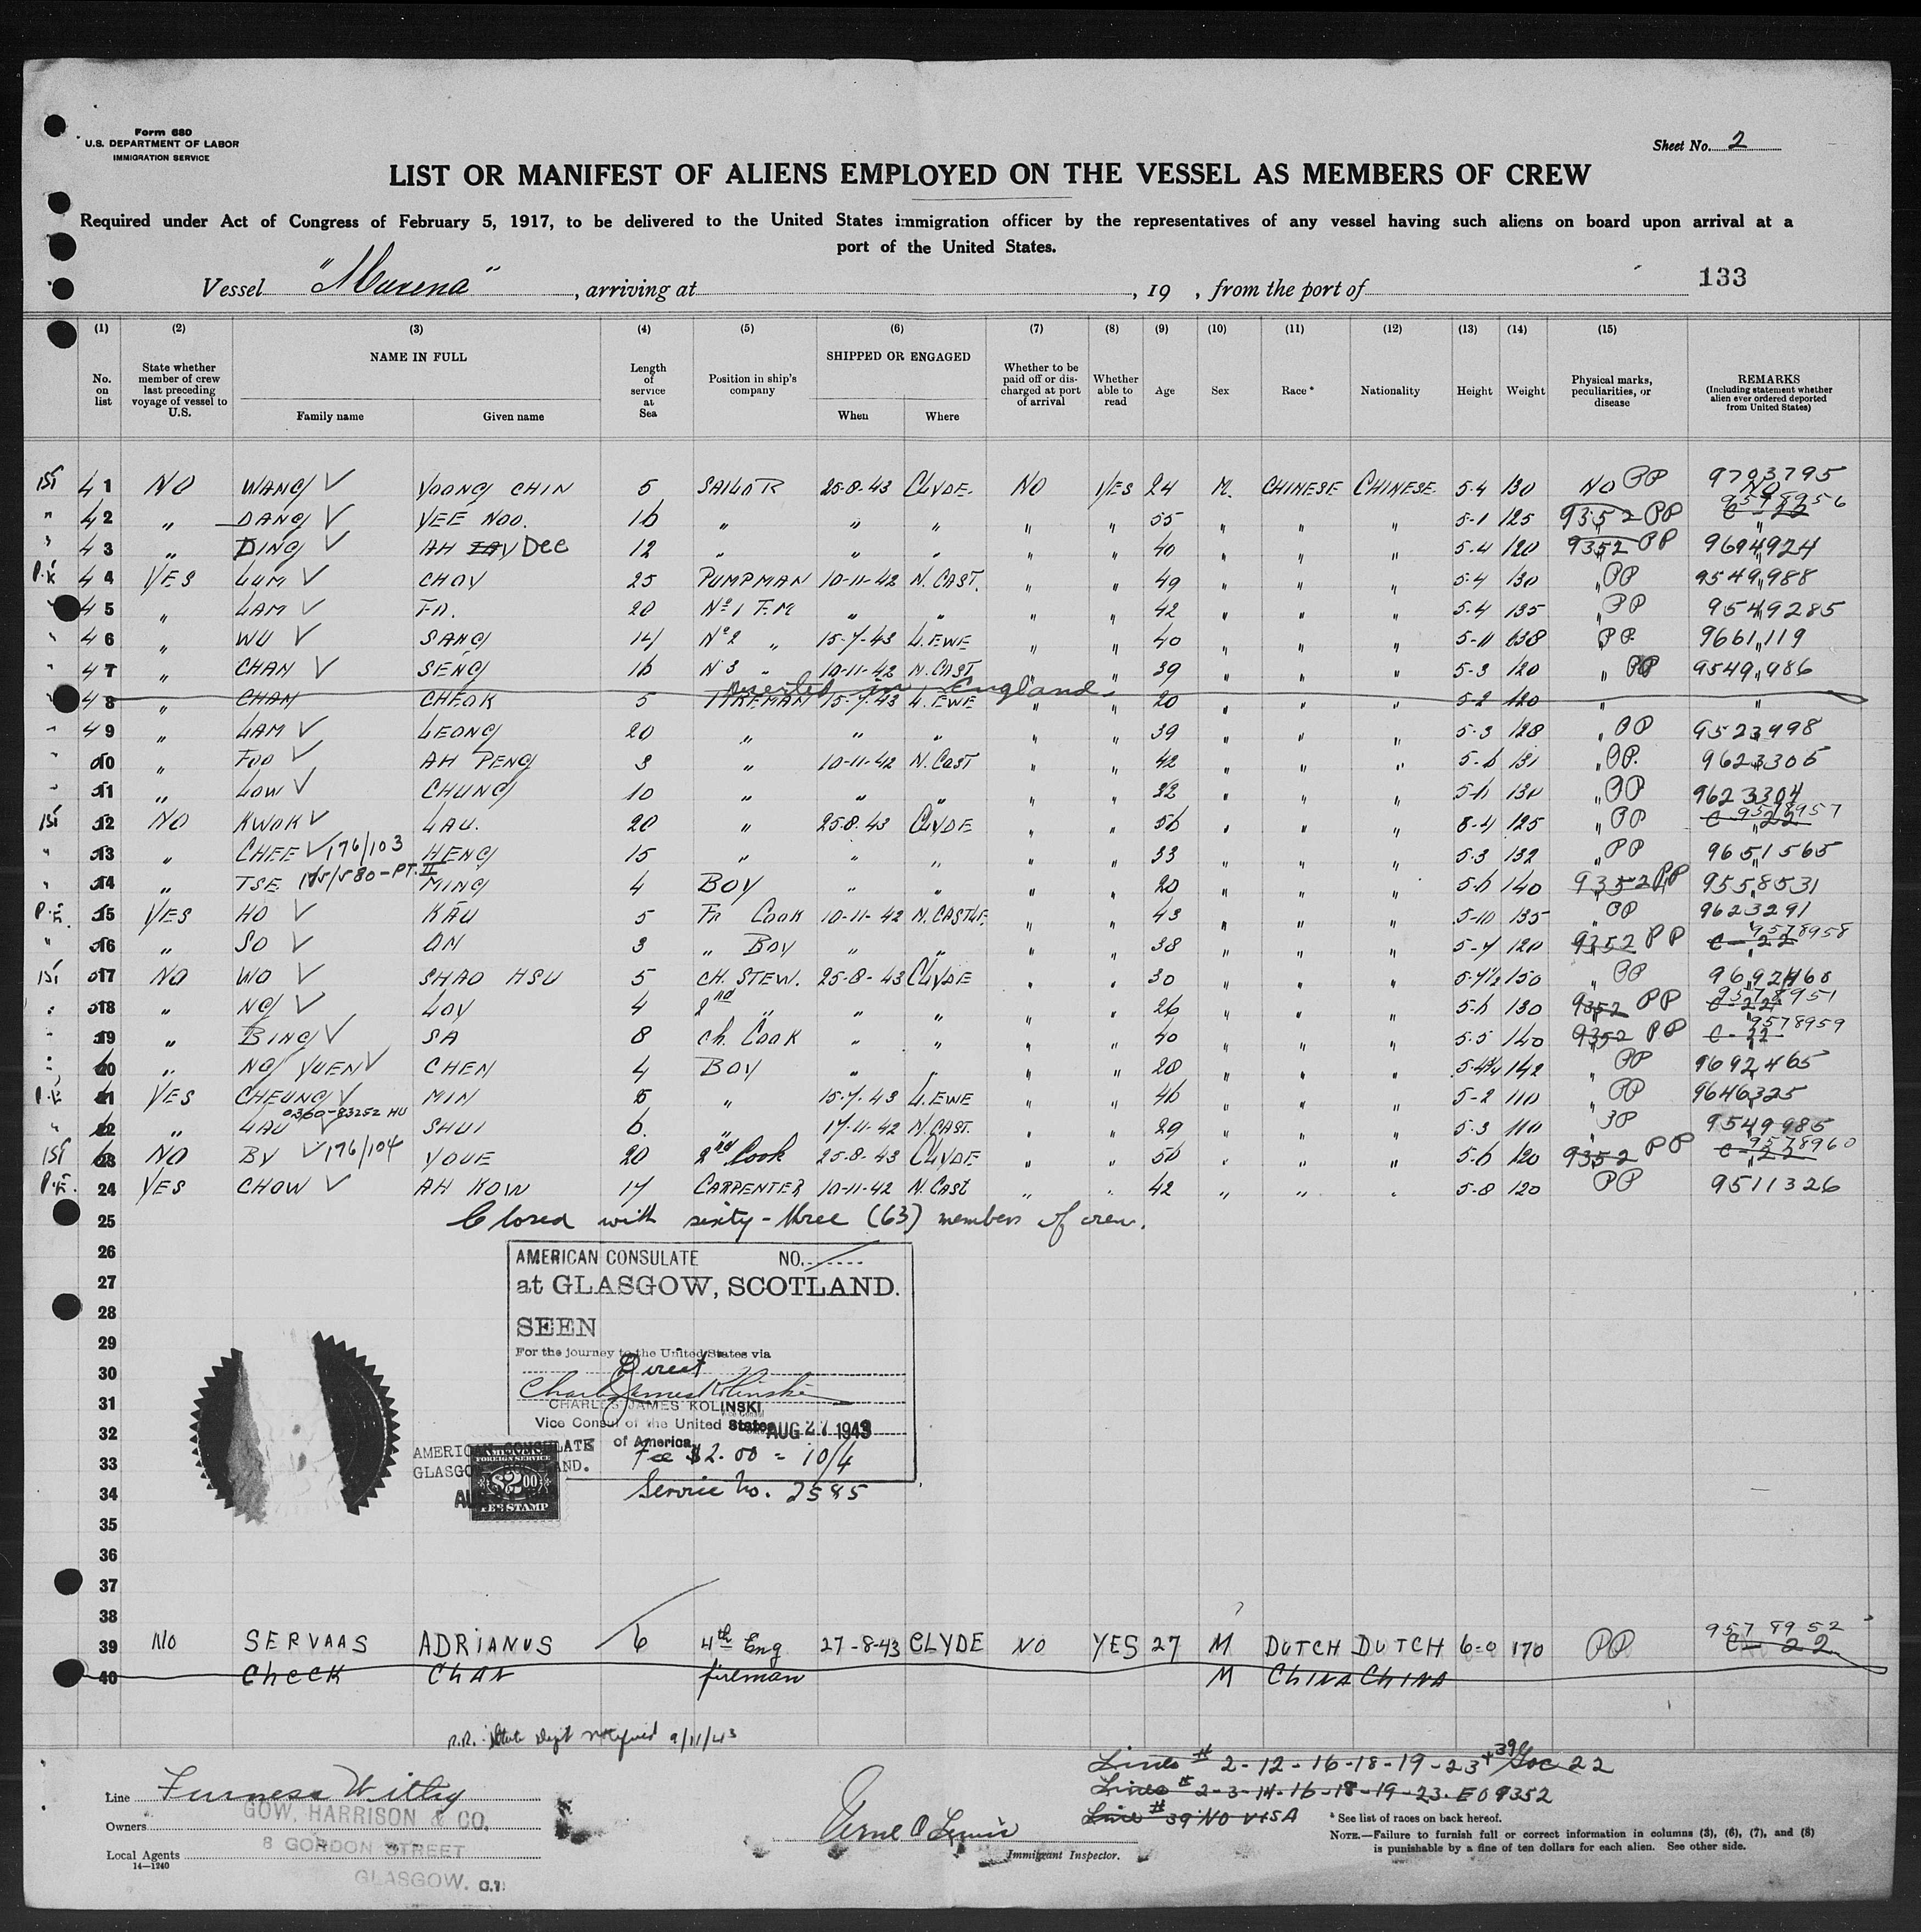 Form 680
U.S. DEPARTMENT OF LABOR
IMMIGRATION SERVICE
Sheet No. 2
LIST OR MANIFEST OF ALIENS EMPLOYED ON THE VESSEL AS MEMBERS OF CREW
Required under Act of Congress of February 5, 1917, to be delivered to the United States immigration officer by the representatives of any vessel having such aliens on board upon arrival at a
port of the United States.
Vessel "Murena", arriving at , 19 , from the port of 133
(1) (2) (3) (4) (5) (6) (7) (8) (9) (10) (11) (12) (13) (14) (15)
No. on list State whether member of crew last preceding voyage of vessel to U.S. NAME IN FULL Family name Given name Length of service at Sea Position in ship's company SHIPPED OR ENGAGED When Where Whether to be paid off or discharged at port of arrival Whether able to read Age Sex Race * Nationality Height Weight Physical marks, peculiarities, or disease REMARKS (Including statement whether alien ever ordered deported from United States)
1st 41 NO WANG √ YOONG CHIN 5 SAILOR 25-8-43 CLYDE. NO YES 24 M. CHINESE CHINESE 5-4 130 NO PP 9703795 NO
" 42 " DANG √ YEE NOO. 16 " " " " " 55 " " " 5-1 125 9352 PP 9578956 C-22
" 43 " DING √ AH DEE 12 " " " " " 40 " " " 5-4 120 9352 PP 9694924
P.E 44 YES LUM √ CHOY 25 PUMPMAN 10-11-42 N. CAST. " " 49 " " " 5-4 130 " PP 9549988
45 " LAM √ FO. 20 Nº1 F.M " " " " 42 " " " 5-4 135 " PP 9549285
" 46 " WU √ SANG 14 Nº2 " 15-7-43 L. EWE " " 40 " " " 5-11 138 PP 9661119
" 47 " CHAN √ SENG 16 N 3 " 10-11-42 N. CAST " " 39 " " " 5-3 120 " PP 9549986
deserted in England.
48 " CHAN CHEOK 5 FIREMAN 15-7-43 L. EWE " " 20 " " " 5-2 120 " "
" 49 " LAM √ LEONG 20 " " " " " 39 " " " 5-3 128 " PP 9523998
" 10 " FOO √ AH PENG 3 " 10-11-42 N. CAST " " 42 " " " 5-6 131 " PP. 9623305
" 11 " LOW √ CHUNG 10 " " " " " 22 " " " 5-6 130 " PP 9623304
1st 12 NO KWOK √ LAU. 20 " 25-8-43 CLYDE " " 56 " " " 5-4 125 " PP 9578957 C-22
" 13 " CHEE √ 176/103 HENG 15 " " " " " 33 " " " 5-3 132 " PP 9651565
" 14 " TSE 175/580-PT.II MING 4 BOY " " " " 20 " " " 5-6 140 9352 PP 9558531
P.E. 15 YES HO √ KAU 5 Fr COOK 10-11-42 N. CASTLE. " " 43 " " " 5-10 135 " PP 9623291
" 16 " SO √ ON 3 " BOY " " " " 38 " " " 5-4 120 9352 PP 9578958 C-22
1st 17 NO WO √ SHAO HSU 5 CH. STEW. 25-8-43 CLYDE " " 30 " " " 5-7½ 150 " PP 9692468
" 18 " NG √ LOY 4 2nd " " " " " 26 " " " 5-6 130 9352 PP 9578951 C-22
" 19 " BING √ SA 8 Ch. COOK " " " " 40 " " " 5-5 140 9352 PP 9578959 C-22
" 20 " NG YUEN √ CHEN 4 BOY " " " " 20 " " " 142 " PP 9692465
P.E 21 YES CHEUNG √ MIN 5 " 15-7-43 L. EWE " " 46 " " " 5-2 110 " PP 9646325
" 22 " LAU √ 0360-83252 HU SHUI 6. " 17-11-42 N. CAST. " " 29 " " " 5-3 110 " PP 9549985
1st 23 NO BY √ 176/104 YOUE 20 2nd Cook 25-8-43 CLYDE " " 56 " " " 5-6 120 9352 PP 9578960 C-22
P.E. 24 YES CHOW √ AH KOW 17 CARPENTER 10-11-42 N. CAST " " 42 " " " 5-8 120 PP 9511326
25 Closed with sixty-three (63) members of crew.
26 AMERICAN CONSULATE NO.
27 at GLASGOW, SCOTLAND.
28 SEEN
29 For the journey to the United States via
30 Direct
31 Charles James Kolinski
CHARLES JAMES KOLINSKI
32 Vice Consul of the United States of America AUG 27 1943
33 AMERICAN CONSULATE GLASGOW, SCOTLAND. Fee $2.00 = 10/4
FOREIGN SERVICE $2.00 FEE STAMP
34 Service No. 2585
35
36
37
38
39 No SERVAAS ADRIANUS 6 4th Eng 27-8-43 CLYDE NO YES 27 M DUTCH DUTCH 6-0 170 PP 9578952 C-22
40 CHECK CHAN fireman M CHINA CHINA
R.R. State Dept notified 9/11/43
Lines # 2-12-16-18-19-23+39 22
Lines # 2-3-14-16-18-19-23. EO 9352
Line # 39 NO VISA
Line Furness Withy
Owners GOW, HARRISON & CO.
8 GORDON STREET
Local Agents GLASGOW. C.1.
14—1240
Immigrant Inspector.
* See list of races on back hereof.
NOTE.—Failure to furnish full or correct information in columns (3), (6), (7), and (8)
is punishable by a fine of ten dollars for each alien. See other side.